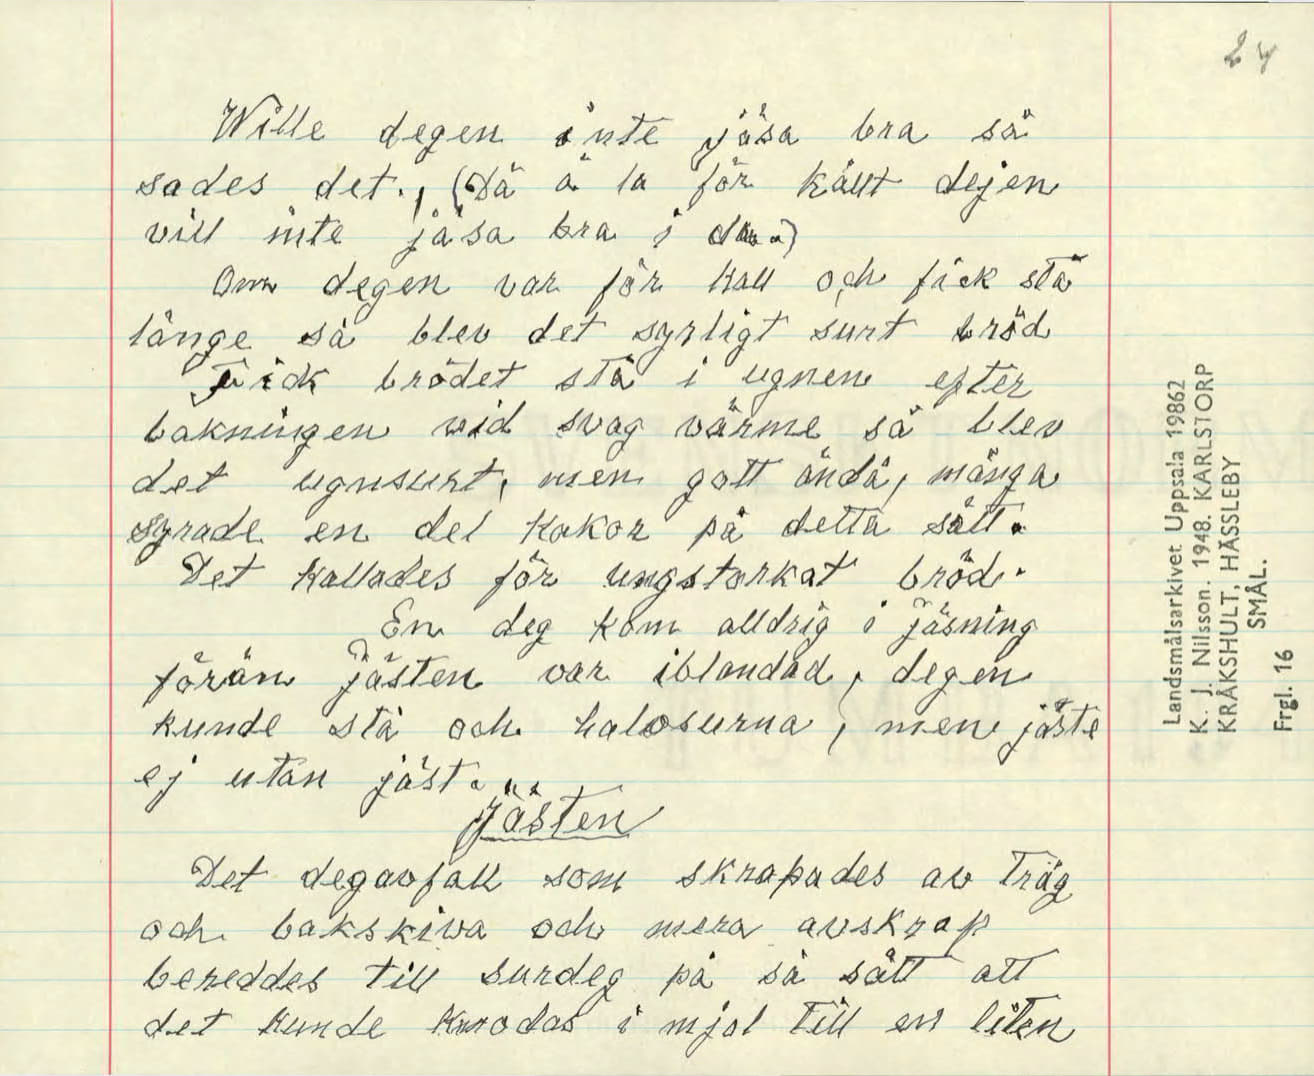 24
Wille degen inte jäsa bra så
sades det., (Dä ä la för kallt dejen
vill inte jäsa bra i da.)
Om degen var för kall och fick stå
länge så blev det syrligt surt bröd
Fick brödet stå i ugnen efter
bakningen vid svag värme så blev
det ugnsurt, men gott ändå, många
syrade en del kakor på detta sätt.
Det kallades för ungstorkat bröd.
En deg kom alldrig i jäsning
förän jästen var iblandad, degen
kunde stå och halvsurna, men jäste
ej utan jäst.
Jästen
Det degavfall som skrapades av Tråg
och bakskiva och mera avskrap
bereddes till surdeg på så sätt att
det kunde knodas i mjöl till en liten
Landsmålsarkivet Uppsala 19862
K. J. Nilsson. 1948. KARLSTORP
KRÅKSHULT, HÄSSLEBY
SMÅL.
Frgl. 16